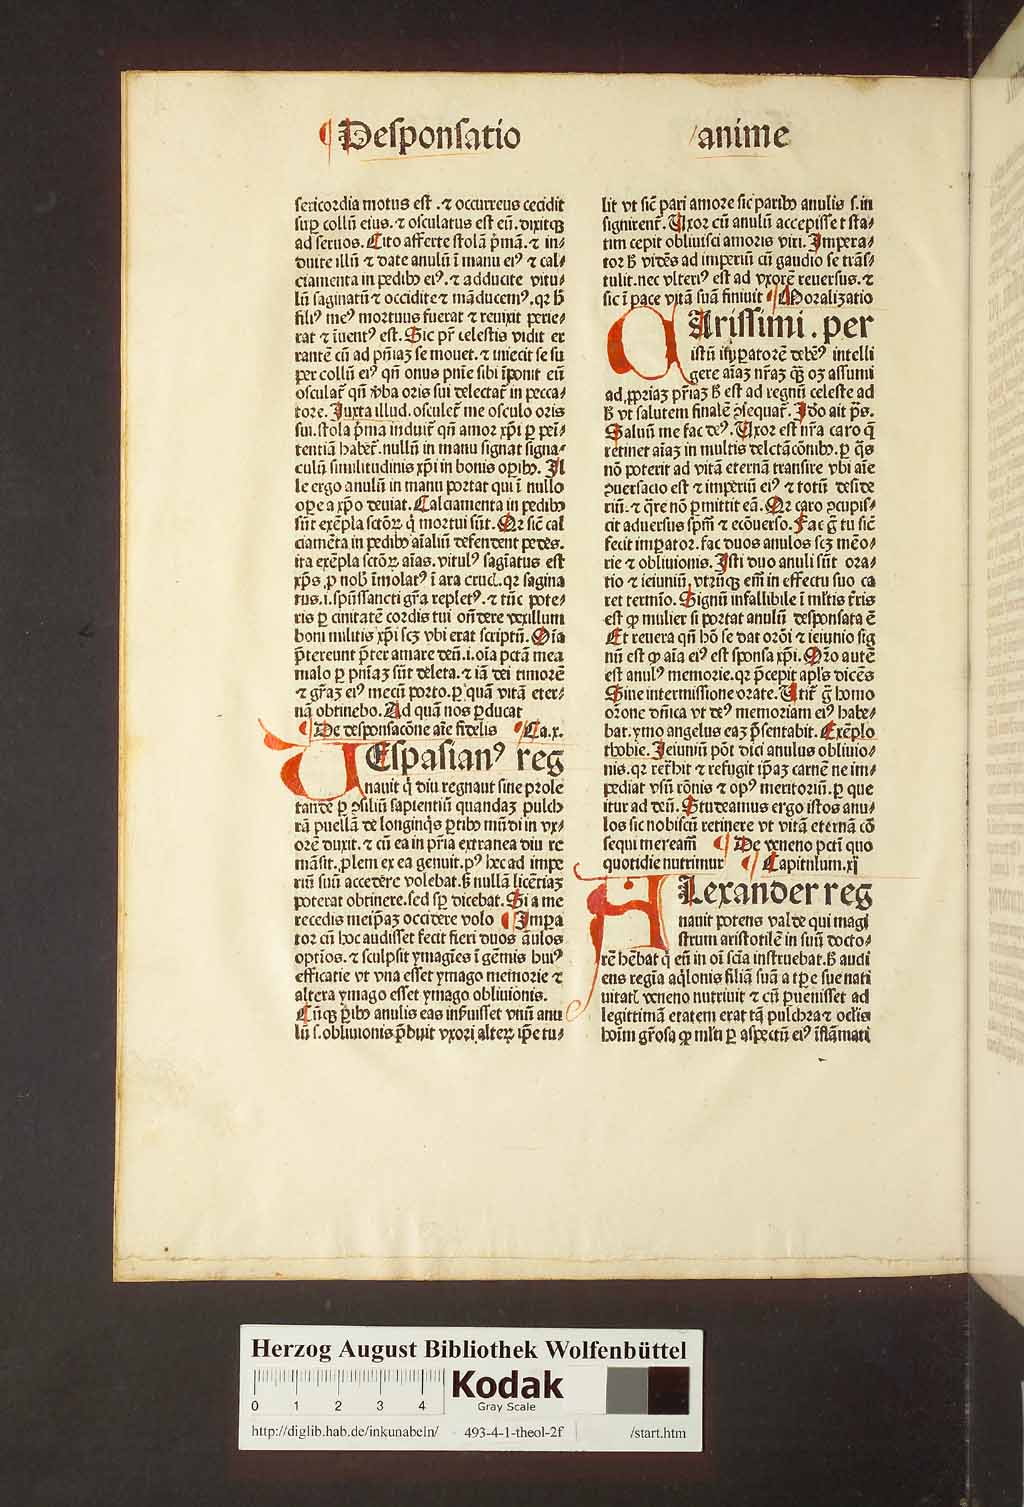 ¶ Desponsatio anime
sericordia motus est . ⁊ occurreus cecidit
suꝑ collū eius. ⁊ osculatus est eū. dixitqꝫ
ad seruos. Cito afferte stolā p̄mā. ⁊ in⸗
duite illū ⁊ date anulū ī manu eiꝰ ⁊ cal⸗
ciamenta in pedibꝰ eiꝰ. ⁊ adducite vitu⸗
lū saginatū ⁊ occidite ⁊ māducemꝰ. qꝛ h̄
filiꝰ meꝰ mortuus fuerat ⁊ reuixit perie⸗
rat ⁊ īuentꝰ est. Sic pr̄ celestis vidit er
rantē cū ad pn̄iaꝫ se mouet. ⁊ iniecit se su
per collū eiꝰ qn̄ onus pnīe sibi īponit eū
osculat᷑ qn̄ v̄ba oris sui delectat᷑ in pecca⸗
tore. Juxta illud. osculet᷑ me osculo oris
sui. stola p̄ma induit᷑ qn̄ amor xp̄i ꝑ pei̅⸗
tentiā habet᷑. nullū in manu signat signa⸗
culū similitudinis xp̄i in bonis oꝑibꝰ. Il
le ergo anulū in manu portat qui ī nullo
opere a xp̄o deuiat. Calciamenta in pedibꝰ
sūt exēpla sctōꝝ q̇ mortui sūt. Qꝛ sic̄ cal
ciamēta in pedibꝰ aīaliū defendent pedes.
ita exēpla sctōꝝ aīas. vitulꝰ sagīatus est
xp̄s ꝓ nob̄ īmolatꝰ ī ara crucꝭ. qꝛ sagina
tus .i. spūssancti gr̄a repletꝰ. ⁊ tūc pote⸗
ris ꝑ ciuitatē cordis tui on̄dere vexillum
boni militis xp̄i scꝫ vbi erat scriptū. Oīa
p̄tereunt p̄ter amare deū .i. oīa pctā mea
malo ꝑ pniāꝫ sūt deleta. ⁊ iā dei timorē
⁊ gr̄aꝫ eiꝰ mecū porto. ꝑ quā vitā eter⸗
nā obtinebo. Ad quā nos ꝑducat
¶ De desponsacōne aīe fidelis ¶ Ca.x.
VEspasianꝰ reg
nauit q̇ diu regnaut sine prole
tande ꝑ ꝯsiliū sapientiū quandaꝫ pulch
rā puellā de longinq̇s ꝑtibꝰ mūdi in vx⸗
orē duxit. ⁊ cū ea in pr̄ia extranea diu re
māsit. ꝓlem ex ea genuit. pꝰ hec ad impe
riū suū accedere volebat. ß nullā licētiaꝫ
poterat obtinere. sed sꝑ dicebat. Si a me
recedis meip̄aꝫ occidere volo ¶ Imꝑa
tor cū hoc audisset fecit fieri duos ānulos
optīos. ⁊ sculpsit ymagīes ī gēmis huiꝰ
efficatie vt vna esset ymago memorie ⁊
altera ymago esset ymago obliuionis.
Cūqꝫ p̄dibꝰ anulis eas infixisset vnū anu
lū s. obliuionis p̄buit vxori. alteꝝ ip̄e tu⸗
lit vt sic̄ pari amore sic paribꝰ anulis s. in
signirent᷑. Uxor cū anulū accepisset sta⸗
tim cepit obliuisci amoris viri. Impera⸗
tor h̄ vidēs ad imperiū cū gaudio se trās⸗
tulit. nec vlteriꝰ est ad vxorē reuersus. ⁊
sic ī pace vitā suā finiuit ¶ Moralizatio
CArissimi . per
istū im̄ꝑatorē debēꝰ intelli
gere aīaꝫ nr̄aꝫ q̄ꝫ oꝫ assumi
ad ꝓpriaꝫ pr̄iaꝫ h̄ est ad regnū celeste ad
h̄ vt salutem finalē ꝯsequat᷑. Ido ait p̄s.
Saluū me fac deꝰ. Uxor est nr̄a caro q̄
retinet aīaꝫ in multis delctācōnibꝰ. ꝑ q̄s
nō poterit ad vitā eternā transire vbi aīe
ꝯuersacio est ⁊ imperiū eiꝰ ⁊ totū deside
riū. ⁊ q̄re nō ꝑmittit eā. Qꝛ caro ꝯcupis⸗
cit aduersus sp̄m ⁊ ecōuerso. Fac g̊ tu sic̄
fecit imꝑator. fac duos anulos scꝫ mēo⸗
rie ⁊ obliuionis. Isti duo anuli sūt ora⸗
tio ⁊ ieiuniū. vtrūqꝫ em̄ in effectu suo ca
ret termīo. Signū infallibile ī ml̄tis tr̄ris
est ꝙ mulier si portat anulū desponsata ē
Et reuera qn̄ hō se dat orōi ⁊ ieiunio sig
nū est ꝙ aīa eiꝰ est sponsa xp̄i. Or̄o autē
est anulꝰ memorie. qꝛ p̄cepit apl̄s dicēs
Sine intermissione orate. Utit᷑ g̊ homo
orōne dn̄ica vt deꝰ memoriam eiꝰ habe⸗
bat. ymo angelus eaꝫ p̄sentabit. Exēplo
thobie. Jeiuniū pōt dici anulus obliuio⸗
nis. qꝛ ret᷑hit ⁊ refugit ip̄aꝫ carnē ne im⸗
pediat vsū rōnis ⁊ opꝰ meritoriū. ꝑ que
itur ad deū. Studeamus ergo istos anu⸗
los sic nobiscū retinere vt vitā eternā cō
sequi meream̄ ¶ De veneno pctī quo
quotidie nutrimur ¶ Capitulum.xj
ALexander reg
nauit potens valde qui magi
strum aristotilē in suū docto⸗
rē hēbat q̇ eū in oī scīa instruebat. ß audi
ens regīa aq̇lonis filiā suā a tꝑe sue nati
uitatꝭ veneno nutriuit ⁊ cū ꝑuenisset ad
legittimā etatem erat tā pulchra ⁊ ocl̄is
hoīm gr̄osa ꝙ ml̄ti ꝑ aspectū eiꝰ īflāmati
Herzog August Bibliothek Wolfenbüttel
0 1 2 3 4
Kodak
Gray Scale
http://diglib.hab.de/inkunabeln/ 493-4-1-theol-2f /start.htm